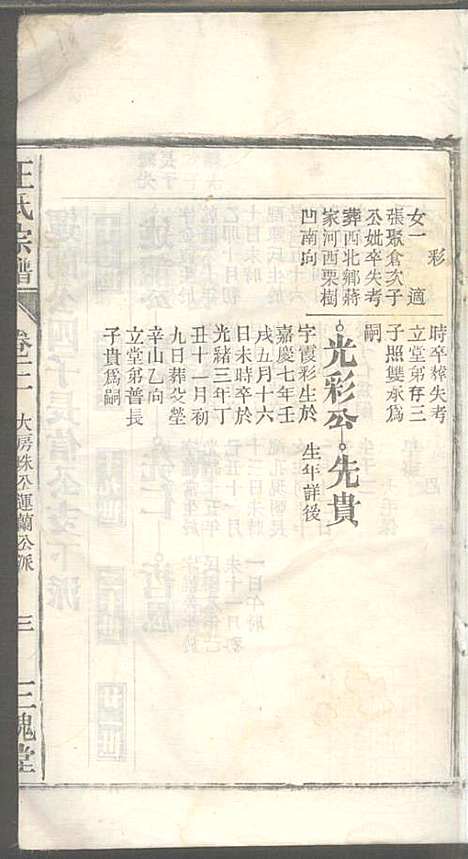 女一 彩 適
張聚倉次子
公妣卒失考
葬西北鄉蔣
家河西栗樹
凹南向
時卒葬失考
立堂弟存三
子照雙承為
嗣
光彩公
先貴
生年詳後
字霞彩生於
嘉慶七年壬
戌五月十六
日未時卒於
光緒三年丁
丑十一月初
九日葬父塋
辛山乙向
立堂弟善長
子貴為嗣
王氏宗譜
卷二
大房珠公運蘭公派
三
三槐堂